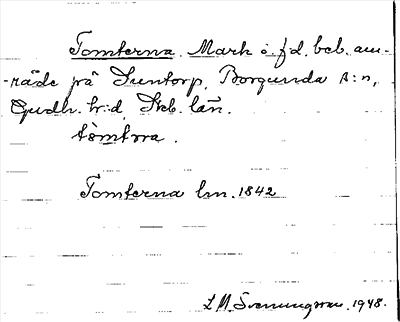 Tomterna. Mark i f.d. beb. om-
-råde på Suntorp, Borgunda s:n,
Gudh. hr:d, Skb. län.
tòmtra.
Tomterna lm. 1842
L. M. Svenungsson. 1948.